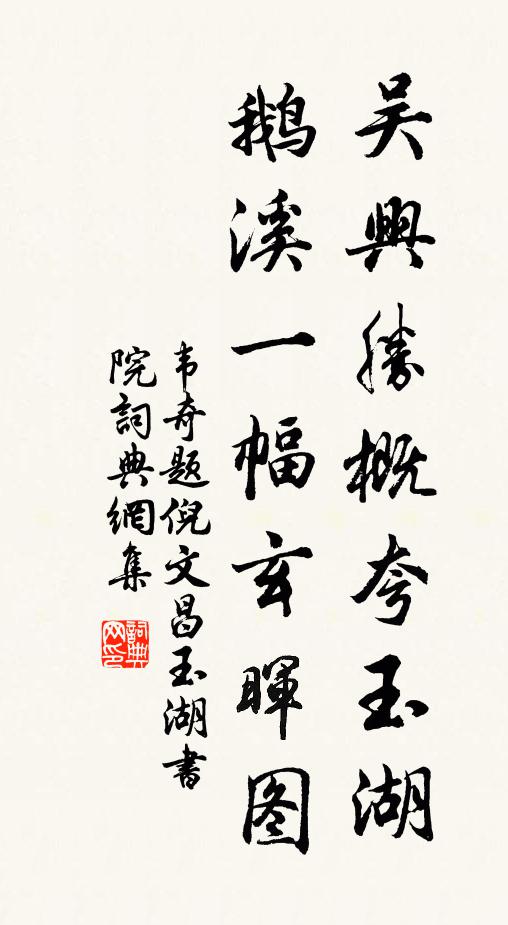 吴興勝概夸玉湖
鵝溪一幅玄暉图
韦奇题倪文昌玉湖書
院詞典網集
詞典网印